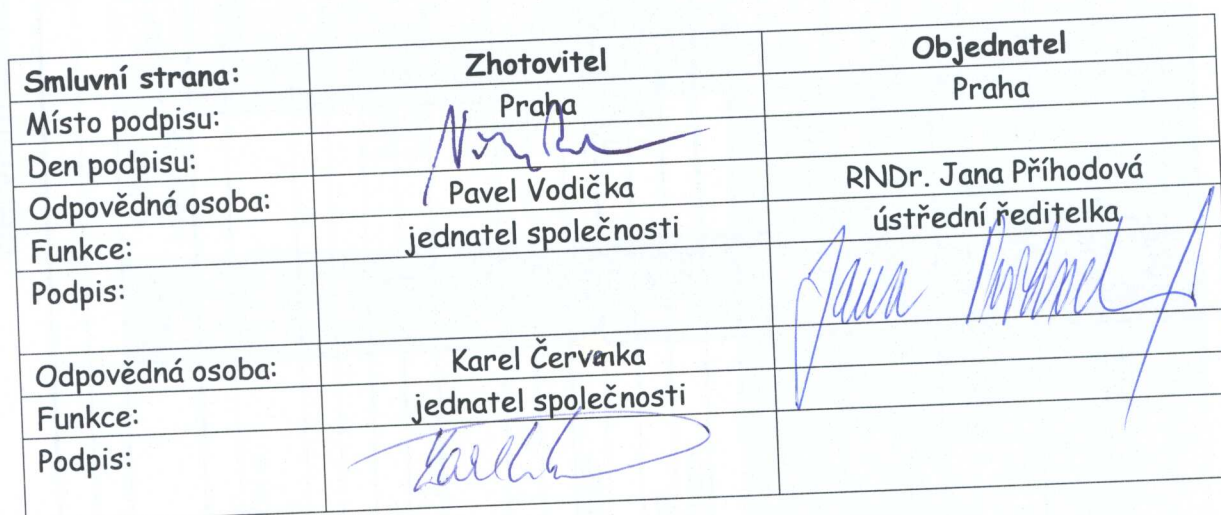 Smluvní strana: Zhotovitel Objednatel
Místo podpisu: Praha Praha
Den podpisu:
Odpovědná osoba: Pavel Vodička RNDr. Jana Příhodová
Funkce: jednatel společnosti ústřední ředitelka
Podpis: Jana
Odpovědná osoba: Karel Červenka
Funkce: jednatel společnosti
Podpis: